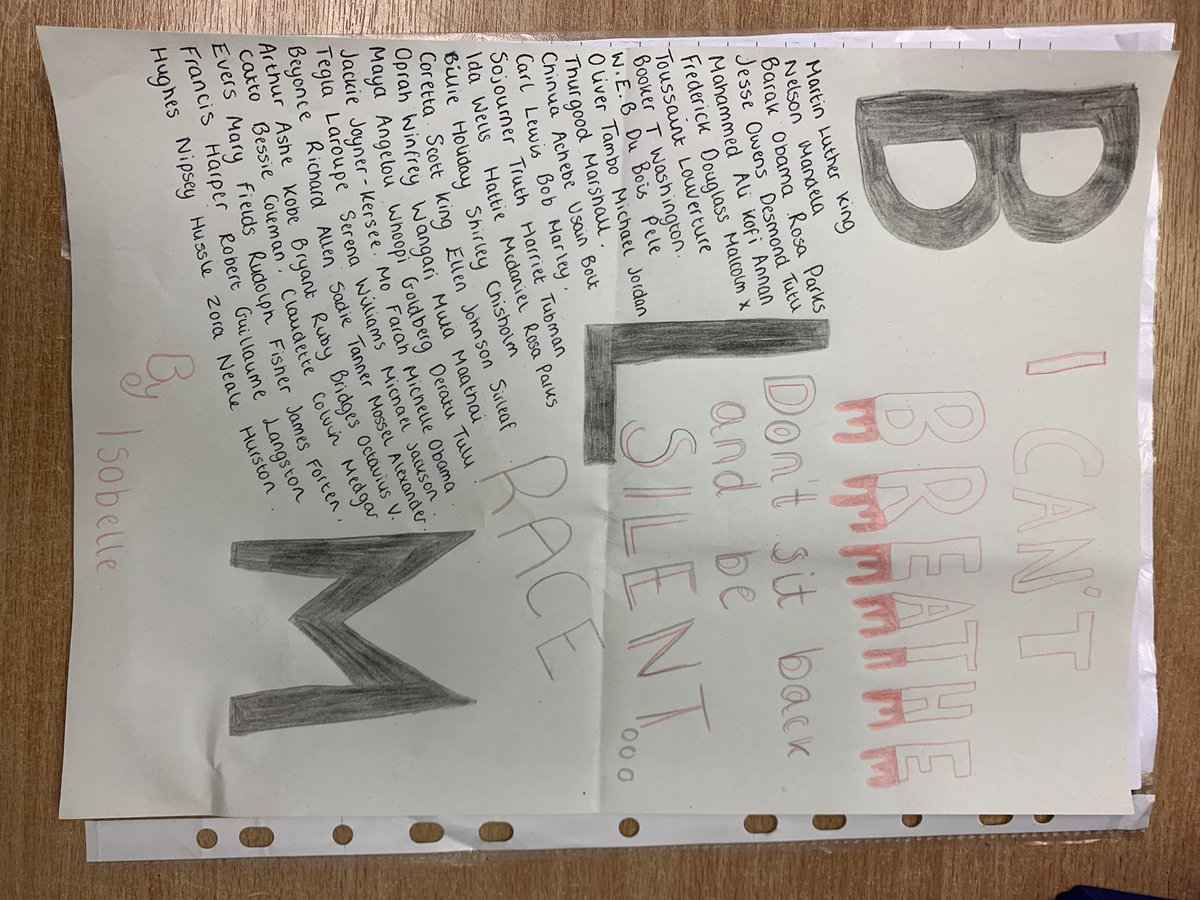 B
I CAN'T
BREATHE
Don't sit back
and be
SILENT...
RACE
L
M
Martin Luther King
Nelson Mandela
Barak Obama Rosa Parks
Jesse Owens Desmond Tutu
Mohammed Ali Kofi Annan
Frederick Douglass Malcolm X
Toussaint Louverture
Booker T Washington.
W.E.B Du Bois Pele
Oliver Tambo Michael Jordan
Thurgood Marshall.
Chinua Achebe Usain Bolt
Carl Lewis Bob Marley,
Sojourner Truth Harriet Tubman
Ida Wells Hattie Mcdaniel Rosa Parks
Billie Houday Shirley Chisholm
Coretta Scott King Ellen Johnson Sirleaf
Oprah Winfrey Wangari Muta Maathai
Maya Angelou Whoopi Goldberg Deratu Tulu
Jackie Joyner-Kersee. Mo Farah Michelle Obama
Tegla Laroupe Serena Williams Michael Jackson
Beyonce Richard Allen Sadie Tanner Mossel Alexander
Arthur Ashe Kobe Bryant Ruby Bridges Octavius V.
Cato Bessie Coleman, Claudette Colvin Medgar
Evers Mary Fields Rudolph Fisher James Forten.
Francis Harper Robert Guillaume Langston
Hughes Nipsey Hussle Zora Neale Hurston.
By Isobelle